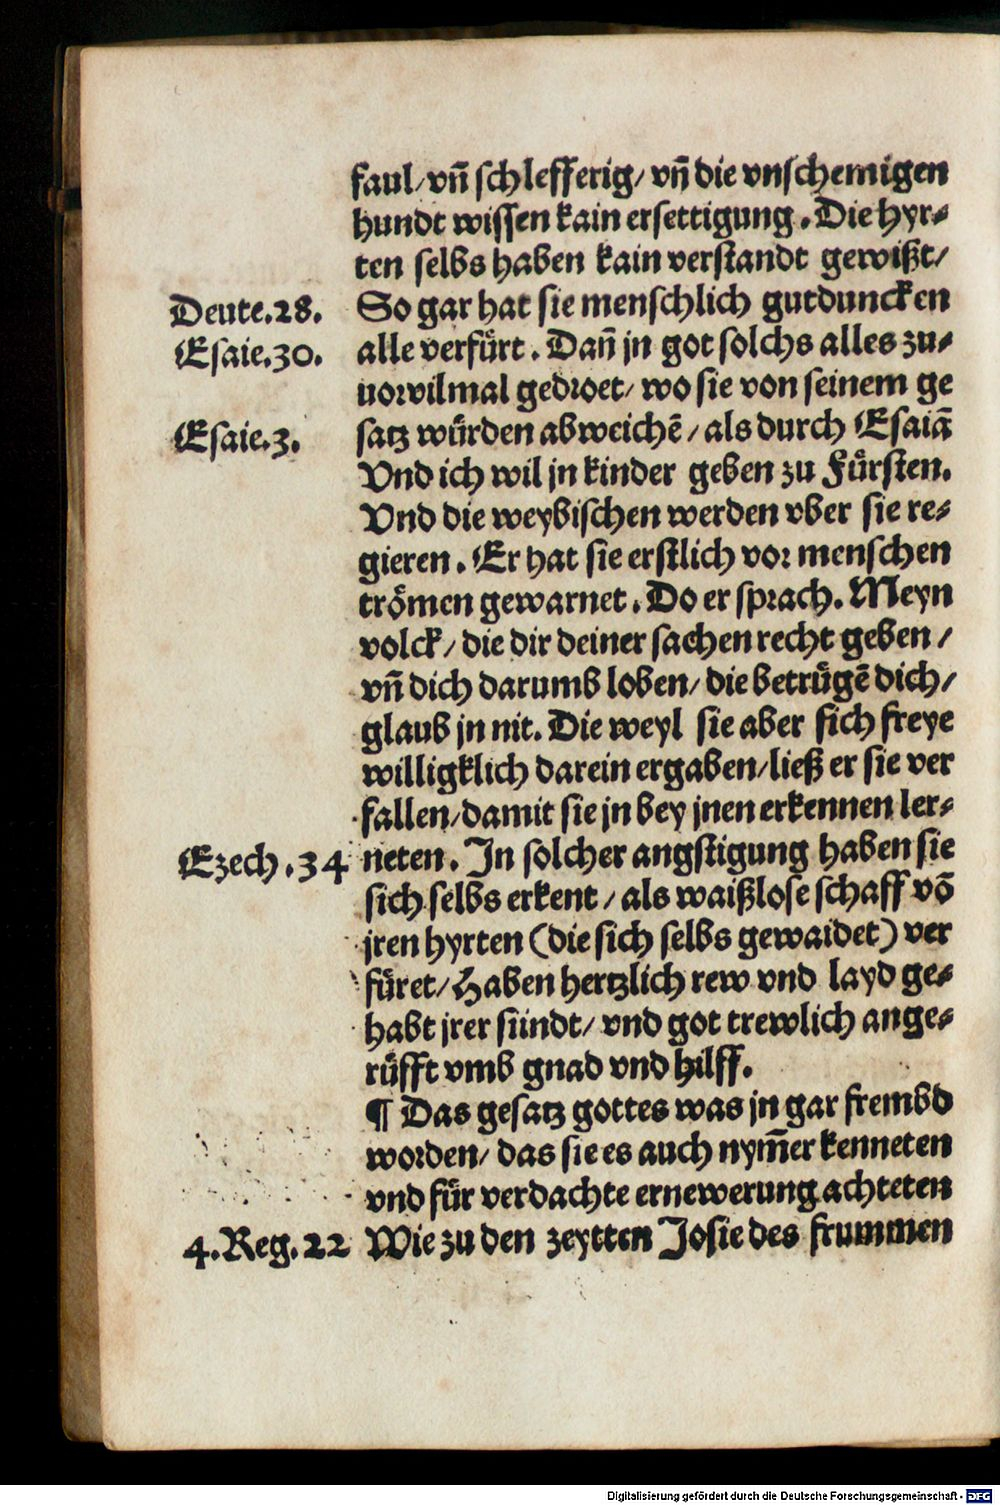 faul/ vn̄ schlefferig/ vn̄ die vnschemigen
hundt wissen kain ersettigung. Die hyr⸗
ten selbs haben kain verstandt gewißt/
Deute.28. So gar hat sie menschlich gutduncken
Esaie.30. alle verfürt. Dan̄ jn got solchs alles zu⸗
uorvilmal gedroet/ wo sie von seinem ge
Esaie.3. satz würden abweichē/ als durch Esaiā
Vnd ich wil jn kinder geben zu Fürsten.
Vnd die weybischen werden vber sie re⸗
gieren. Er hat sie erstlich vor menschen
trömen gewarnet. Do er sprach. Meyn
volck/ die dir deiner sachen recht geben/
vn̄ dich darumb loben/ die betrügē dich/
glaub jn nit. Die weyl sie aber sich freye
willigklich darein ergaben/ ließ er sie ver
fallen/ damit sie jn bey jnen erkennen ler⸗
Ezech.34 neten. In solcher angstigung haben sie
sich selbs erkent/ als waißlose schaff vō
jren hyrten (die sich selbs gewaidet) ver
füret/ Haben hertzlich rew vnd layd ge⸗
habt jrer sündt/ vnd got trewlich ange⸗
rüfft vmb gnad vnd hilff.
¶ Das gesatz gottes was jn gar frembd
worden/ das sie es auch nym̄er kenneten
vnd für verdachte ernewerung achteten
4.Reg.22 Wie zu den zeytten Josie des frummen
Digitalisierung gefördert durch die Deutsche Forschungsgemeinschaft - DFG